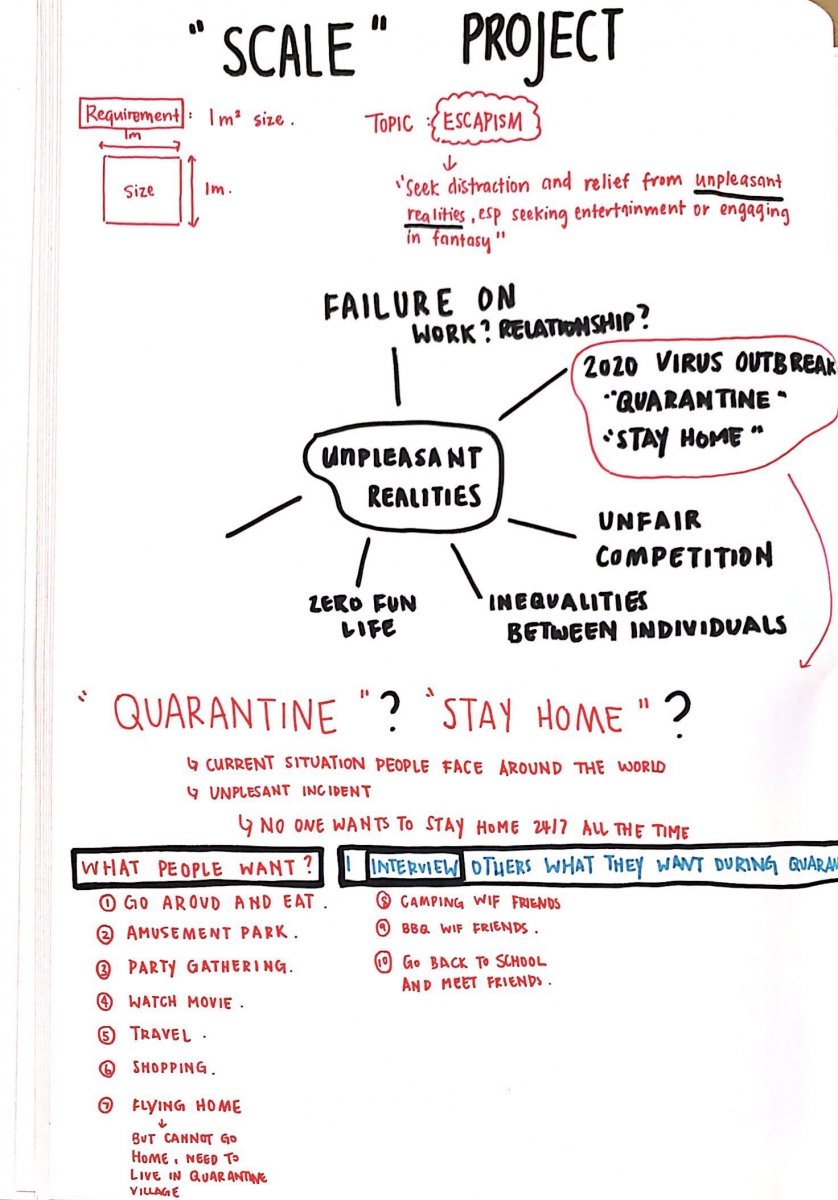 "SCALE" PROJECT
Requirement : 1m² size.
1m
Size
1m.
TOPIC : ESCAPISM
"Seek distraction and relief from unpleasant
realities, esp seeking entertainment or engaging
in fantasy"
FAILURE ON
WORK? RELATIONSHIP?
2020 VIRUS OUTBREAK
"QUARANTINE"
"STAY HOME"
UNPLEASANT
REALITIES
UNFAIR
COMPETITION
ZERO FUN
LIFE
INEQUALITIES
BETWEEN INDIVIDUALS
"QUARANTINE"? "STAY HOME"?
↳ CURRENT SITUATION PEOPLE FACE AROUND THE WORLD
↳ UNPLESANT INCIDENT
↳ NO ONE WANTS TO STAY HOME 24/7 ALL THE TIME
WHAT PEOPLE WANT?
I INTERVIEW OTHERS WHAT THEY WANT DURING QUARAN
① GO AROUD AND EAT.
② AMUSEMENT PARK.
③ PARTY GATHERING.
④ WATCH MOVIE.
⑤ TRAVEL.
⑥ SHOPPING.
⑦ FLYING HOME
BUT CANNOT GO
HOME, NEED TO
LIVE IN QUARANTINE
VILLAGE
⑧ CAMPING WIF FRIENDS
⑨ BBQ WIF FRIENDS.
⑩ GO BACK TO SCHOOL
AND MEET FRIENDS.